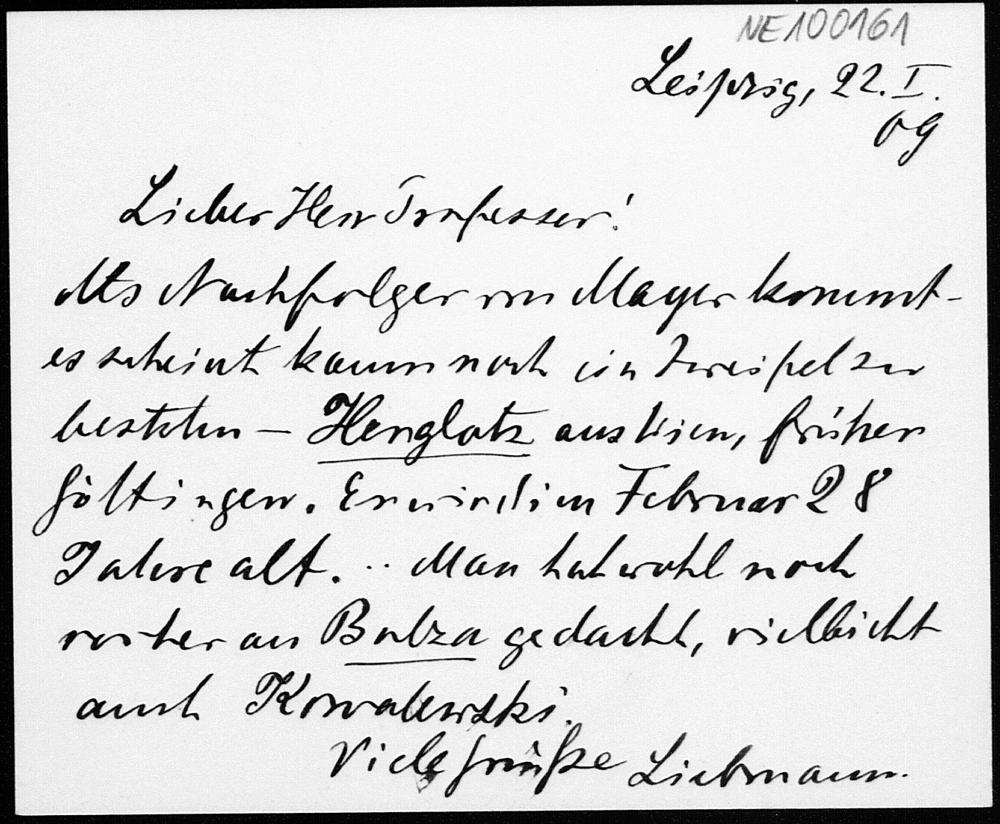 NE100161
Leipzig, 22. I.
09
Lieber Herr Professor!
Als Nachfolger von Mayer kommt -
es scheint kaum noch ein Zweifel zu
bestehen - Herglotz aus Wien, früher
Göttingen. Er wird im Februar 28
Jahre alt. .. Man hat wohl noch
vorher an Bolza gedacht, vielleicht
auch Kowalewski.
Viele Grüße Liebmann.